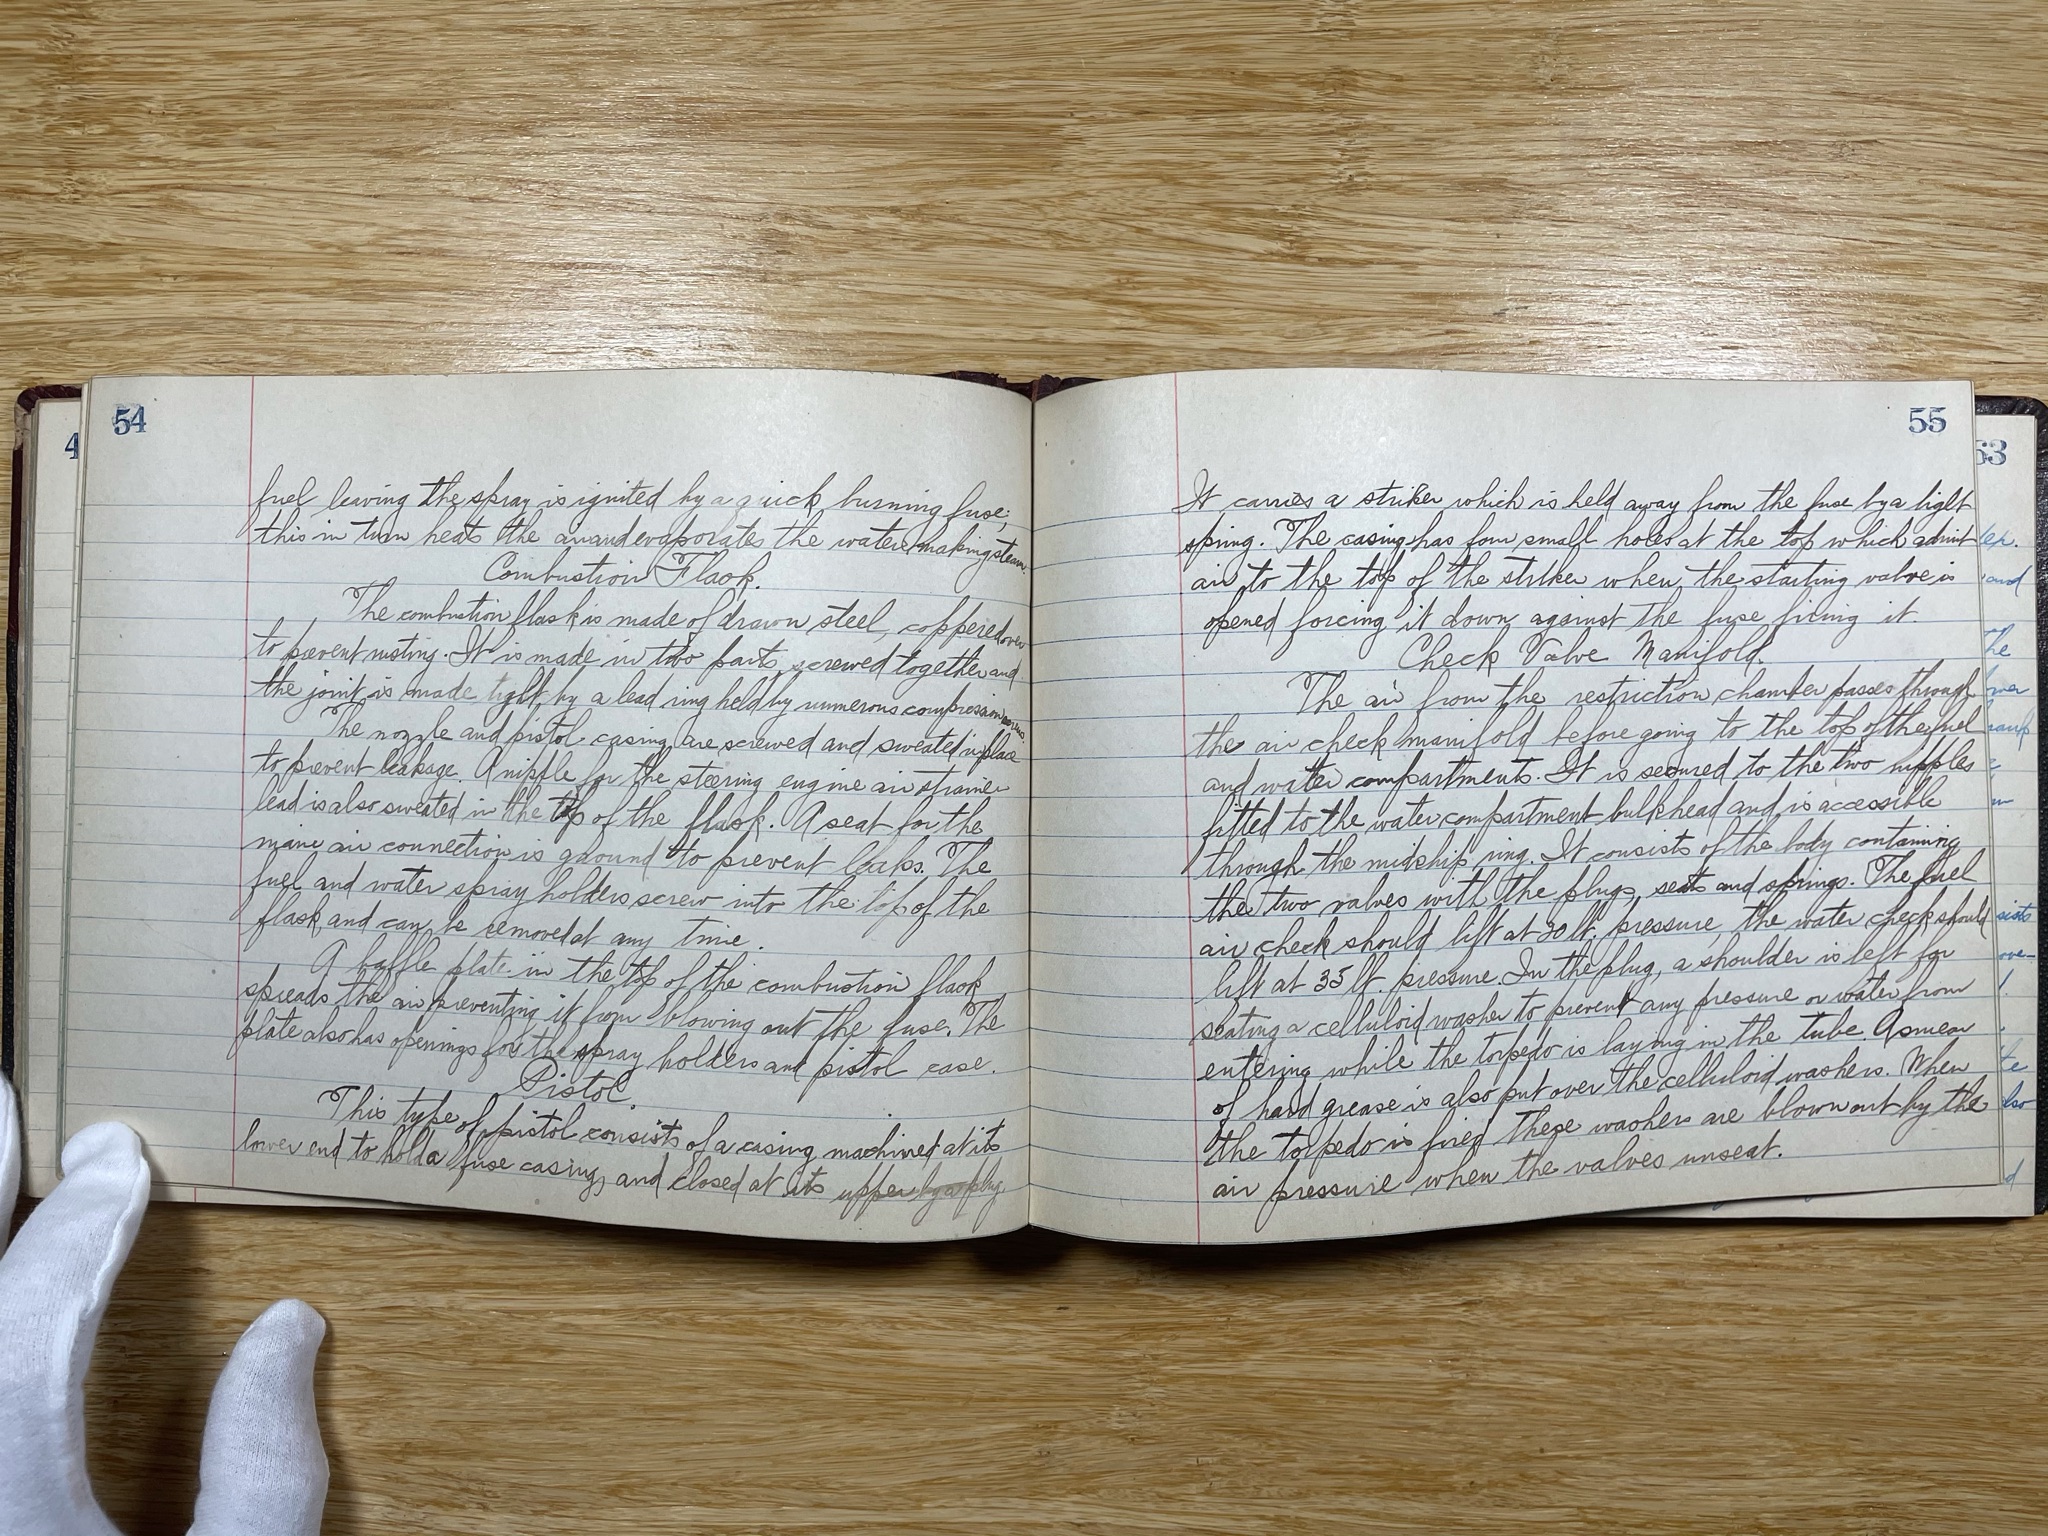 54
fuel leaving the spray is ignited by a quick burning fuse;
this in turn heats the air and evaporates the water making steam.
Combustion Flask.
The combustion flask is made of drawn steel, coppered over
to prevent rusting. It is made in two parts, screwed together and
the joint is made tight by a lead ring held by numerous compression screws.
The nozzle and pistol casing are screwed and sweated in place
to prevent leakage. A nipple for the steering engine air strainer
lead is also sweated in the top of the flask. A seat for the
main air connection is ground to prevent leaks. The
fuel and water spray holders screw into the top of the
flask and can be removed at any time.
A baffle plate in the top of the combustion flask
spreads the air preventing it from blowing out the fuse. The
plate also has openings for the spray holders and pistol case.
Pistol.
This type of pistol consists of a casing machined at its
lower end to hold a fuse casing, and closed at its upper by a plug.
55
It carries a striker which is held away from the fuse by a light
spring. The casing has four small holes at the top which admit
air to the top of the striker when the starting valve is
opened forcing it down against the fuse firing it.
Check Valve Manifold.
The air from the restriction chamber passes through
the air check manifold before going to the top of the fuel
and water compartments. It is secured to the two nipples
fitted to the water compartment bulkhead and is accessible
through the midship ring. It consists of the body containing
the two valves with the plugs, seats and springs. The fuel
air check should lift at 20 lb. pressure, the water check should
lift at 35 lb. pressure. In the plug, a shoulder is left for
seating a celluloid washer to prevent any pressure or water from
entering while the torpedo is laying in the tube. A smear
of hard grease is also put over the celluloid washers. When
the torpedo is fired these washers are blown out by the
air pressure when the valves unseat.
63
and
The
sists
over
also